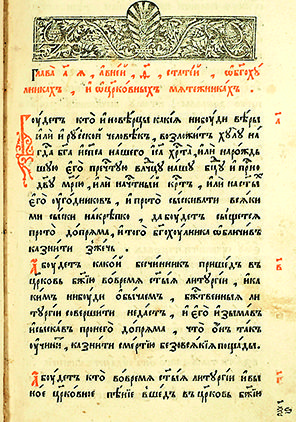 Глава а҃ я, а в ней, ѳ҃, статей, ѡ бг҃охꙋ
лникахъ, и ѡ цр҃ковныхъ мѧтежникахъ.
Бꙋдетъ кто иновѣрцы какиѧ нибꙋди вѣры
или и рꙋской человѣкъ, возложитъ хꙋлꙋ на
гдⷭ҇а бг҃а и сп҃са нашего іс҃а хрⷭ҇та, или нарождь
шꙋю его̀ прⷱ҇тꙋю влⷣчцꙋ нашꙋ бцⷣꙋ и приснѡ
дв҃ꙋ мр҃ію, или на чтⷭ҇ный крⷭ҇тъ, или на ст҃ыⷯ
его̀ ꙋгодниковъ, и про то сыскивати всѧки
ми сыски накрѣпко, да бꙋдетъ сыщетсѧ
про то допрѧма, и того бг҃охꙋлника ѡбличивъ
казнити зжечь.
А бꙋдетъ какой безчинникъ пришедъ въ
цр҃ковь бж҃ію во времѧ ст҃ыѧ литꙋргіи, и ка
кимъ нибꙋди ѡбычаемъ, бжⷭ҇твеныѧ ли
тꙋргіи совершити не дастъ, и его̀ изымавъ
и сыскавъ про него допрѧма, что ѡнъ такъ
ꙋчинитъ, казнити смертію безо всѧкіѧ пощады.
А бꙋдетъ кто во времѧ ст҃ыѧ литꙋргіи и въ и
ное цр҃ковное пѣніе вшедъ въ цр҃ковь бж҃ію
а҃
в҃
г҃